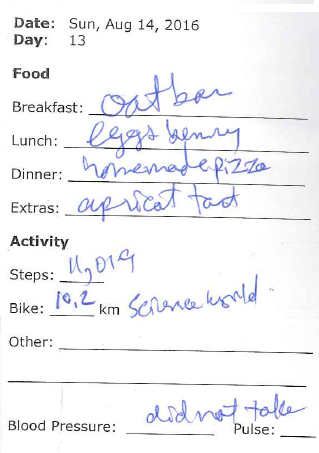 Date: Sun, Aug 14, 2016
Day: 13
Food
Breakfast: oat bar
Lunch: eggs benny
Dinner: homemade pizza
Extras: apricot tart
Activity
Steps: 11,019
Bike: 10.2 km Science World
Other:
did not take
Blood Pressure: Pulse: